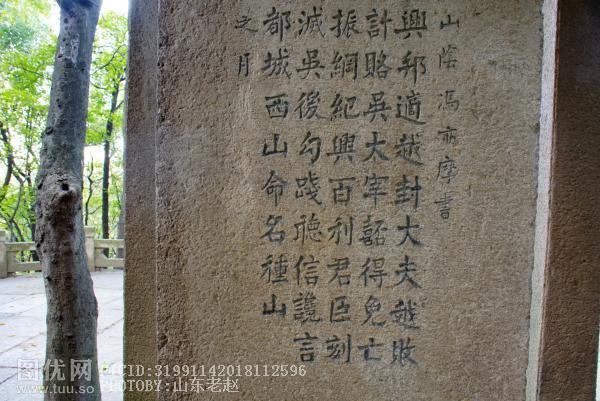 山陰馮亦摩書
興邦適越封大夫越敗
計賂吳大宰嚭得免亡
振綱紀興百利君臣刻
滅吳後勾踐聽信讒言
都城西山命名種山
之月
图优网
www.tuu.so
PICID:31991142018112596
PHOTOBY:山东老赵